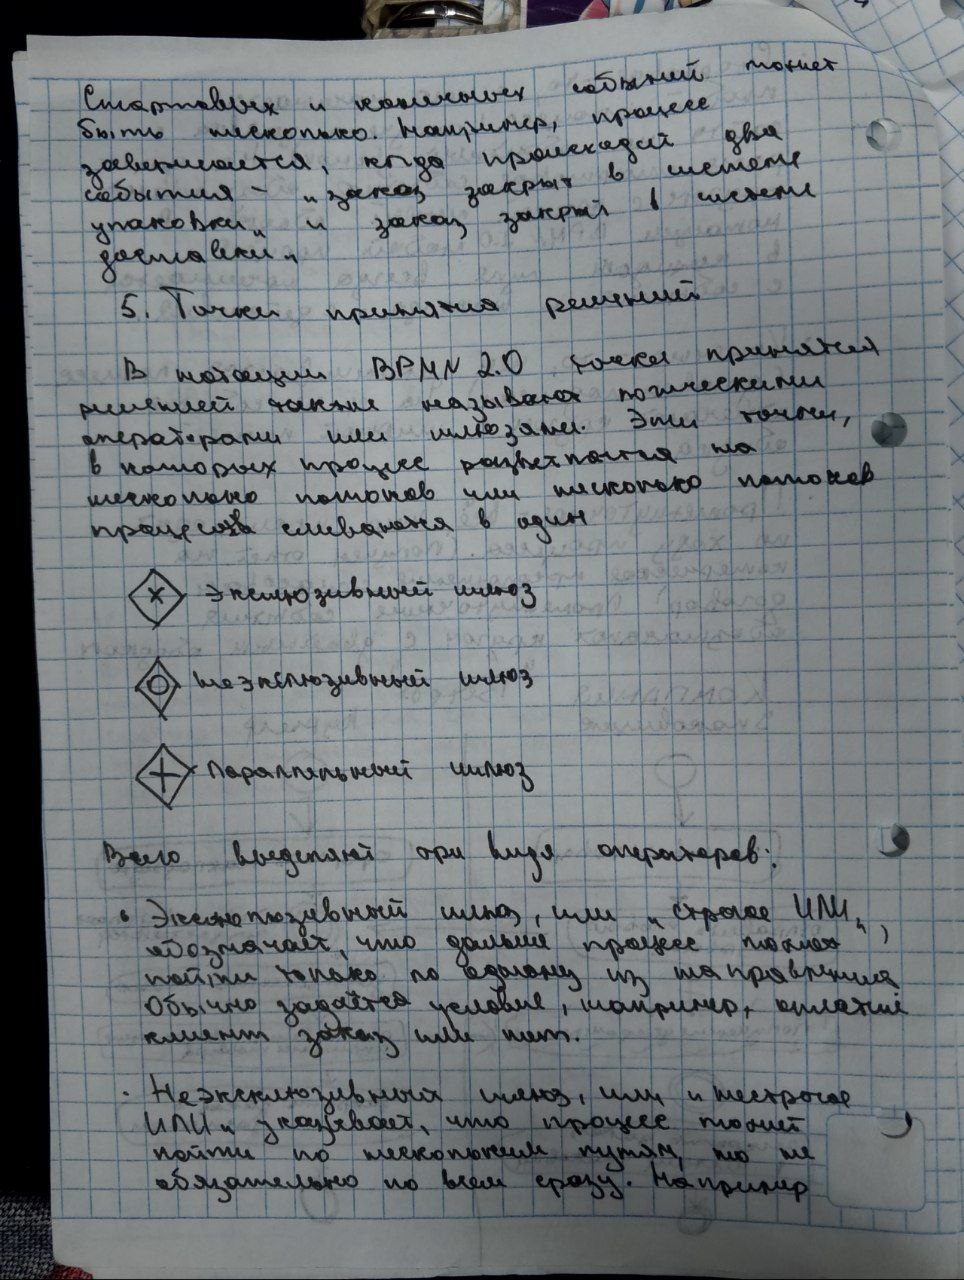 Стартовых и конечных событий может
быть несколько. Например, процесс
завершается, когда происходят два
события – „заказ закрыт в системе
упаковки„ и заказ закрыт в системе
доставки„
5. Точки принятия решений
В нотации BPMN 2.0 точки принятия
решений также называют логическими
операторами или шлюзами. Это точки,
в которых процесс разветвляется на
несколько потоков или несколько потоков
процесса сливаются в один
Эксклюзивный шлюз
Неэксклюзивный шлюз
Параллельный шлюз
Всего выделяют три вида операторов:
• Эксклюзивный шлюз, или „строгое ИЛИ„,
обозначает, что дальше процесс может
пойти только по одному из направлений
Обычно задаётся условие, например, оплатил
клиент заказ или нет.
• Неэксклюзивный шлюз, или „нестрогое
ИЛИ„ указывает, что процесс может
пойти по нескольким путям, но не
обязательно по всем сразу. Например